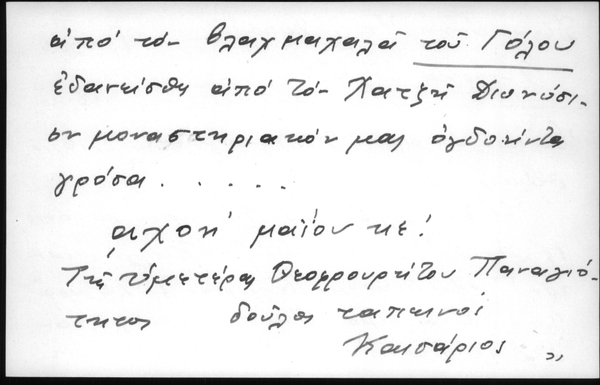 ἀπό τόν βλαχμαχαλᾶ τοῦ Γόλου
ἐδανείσθη ἀπό τόν Χατζῆ Διονύσι-
ον μοναστηριακόν μας ὀγδοήντα
γρόσα . . . . .
αχοη' μαΐου κε!
Τῆς ὑμετέρας Θεοφρουρήτου Παναγιό-
τητος δοῦλος ταπεινός
Καισάριος